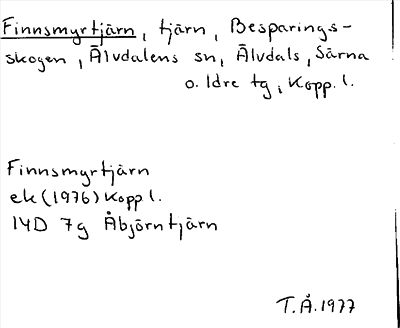 Finnsmyrtjärn, tjärn, Besparings-
skogen, Älvdalens sn, Älvdals, Särna
o. Idre tg, Kopp. l.
Finnsmyrtjärn
ek (1976) Kopp l.
14D 7g Åbjörntjärn
T.Å. 1977